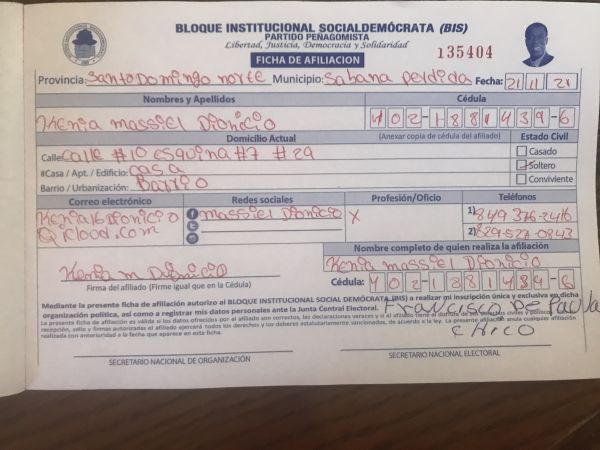 BLOQUE INSTITUCIONAL SOCIALDEMÓCRATA (BIS)
PARTIDO PEÑAGOMISTA
Libertad, Justicia, Democracia y Solidaridad
FICHA DE AFILIACION
135404
Provincia: Santo Domingo norte Municipio: Sabana perdida Fecha: 21 11 21
Nombres y Apellidos Cédula
Kenia massiel Dionicio 402-1881439-6
Domicilio Actual (Anexar copia de cédula del afiliado) Estado Civil
Calle: calle #10 esquina #7 #29 Casado
#Casa / Apt. / Edificio: casa Soltero
Barrio / Urbanización: Barrio Conviviente
Correo electrónico Redes sociales Profesión/Oficio Teléfonos
Kenia16Dionicio massiel Dionicio X 1) 849 376-2416
@icloud.com 2) 829-527-0843
Nombre completo de quien realiza la afiliación
Kenia massiel Dionicio
Kenia m Dionicio Cédula: 402-1881439-6
Firma del afiliado (Firme igual que en la Cédula)
Mediante la presente ficha de afiliación autorizo al BLOQUE INSTITUCIONAL SOCIAL DEMÓCRATA (BIS) a realizar mi inscripción única y exclusiva en dicha
organización política, así como a registrar mis datos personales ante la Junta Central Electoral. Francisco De Paula
La presente ficha de afiliación es válida si los datos ofrecidos por el afiliado son correctos, las declaraciones veraces y si el afiliado tiene
recepción, sello y firmas autorizadas el afiliado ejercerá todos los derechos y los deberes estatutariamente sancionados, de acuerdo a la ley. La presente afiliación anula cualquier afiliación
realizada con anterioridad a la fecha que aparece en esta ficha. CHICO
SECRETARIO NACIONAL DE ORGANIZACIÓN SECRETARIO NACIONAL ELECTORAL